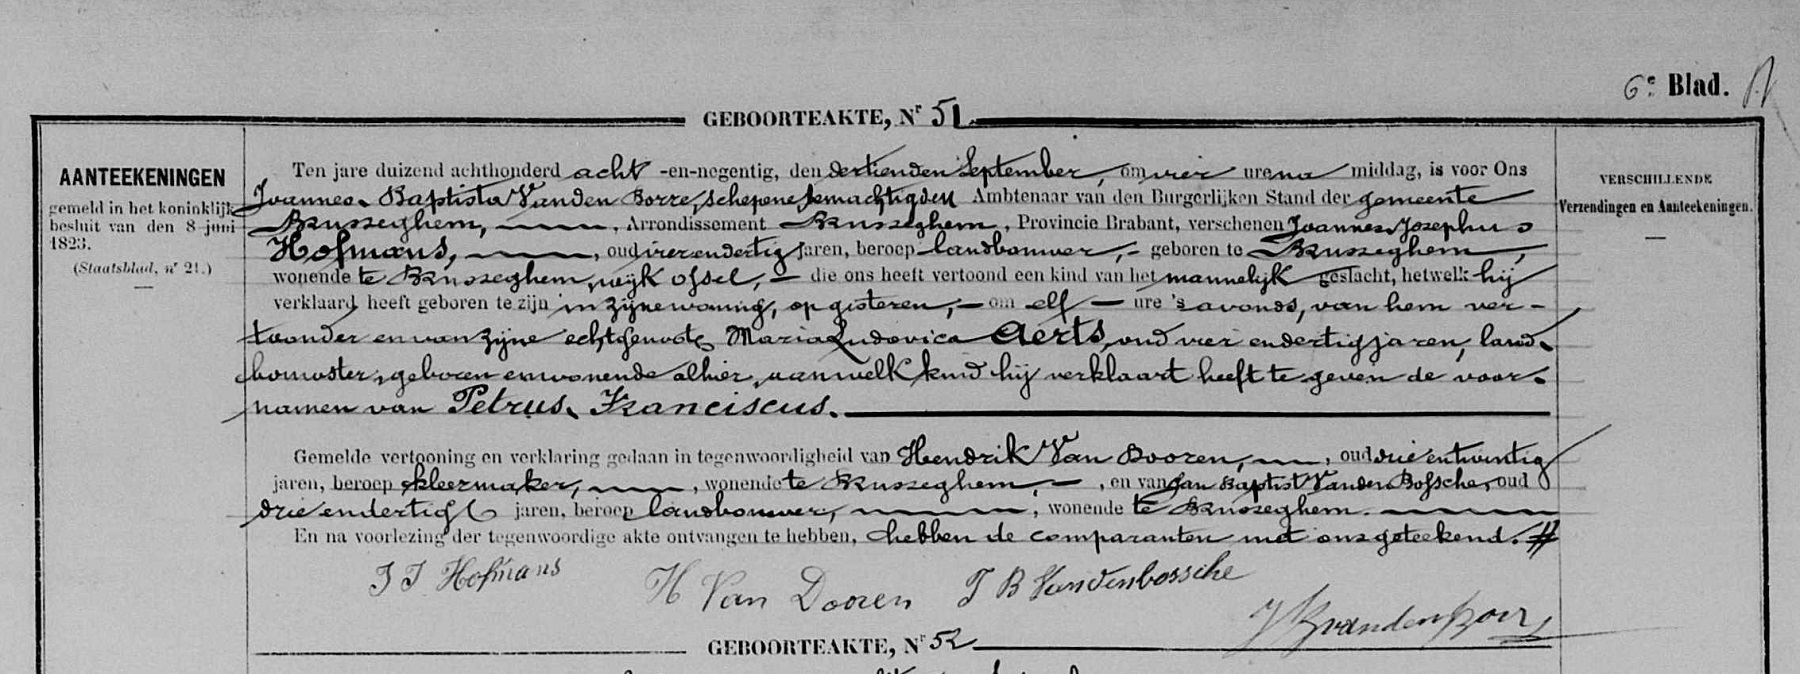 6e Blad.
GEBOORTEAKTE, Nr 51.
AANTEEKENINGEN
gemeld in het koninklijk
besluit van den 8 juni
1823.
(Staatsblad, nr 21.)
VERSCHILLENDE
Verzendingen en Aanteekeningen.
Ten jare duizend achthonderd acht -en-negentig, den dertienden September, om vier ure na middag, is voor Ons
Joannes Baptista Vanden Borre, schepene gemachtigden Ambtenaar van den Burgerlijken Stand der gemeente
Brusseghem, Arrondissement Brusseghem, Provincie Brabant, verschenen Joannes Josephus
Hofmans, oud vierendertig jaren, beroep landbouwer, geboren te Brusseghem,
wonende te Brusseghem, wijk Ossel, die ons heeft vertoond een kind van het mannelijk geslacht, hetwelk hij
verklaard heeft geboren te zijn in zijne woning, op gisteren, om elf ure 's avonds, van hem ver-
toonder en van zijne echtgenoote Maria Ludovica Aerts, oud vier en dertig jaren, land-
bouwster, geboren en wonende alhier, aan welk kind hij verklaart heeft te geven de voor-
namen van Petrus, Franciscus.
Gemelde vertooning en verklaring gedaan in tegenwoordigheid van Hendrik Van Dooren, oud drie en twintig
jaren, beroep kleermaker, wonende te Brusseghem, en van Jan Baptist Vanden Bossche, oud
drie en dertig jaren, beroep landbouwer, wonende te Brusseghem.
En na voorlezing der tegenwoordige akte ontvangen te hebben, hebben de comparanten met ons geteekend. #
J J Hofmans H Van Dooren J B Vandenbossche
J B Vandenborre
GEBOORTEAKTE, Nr 52